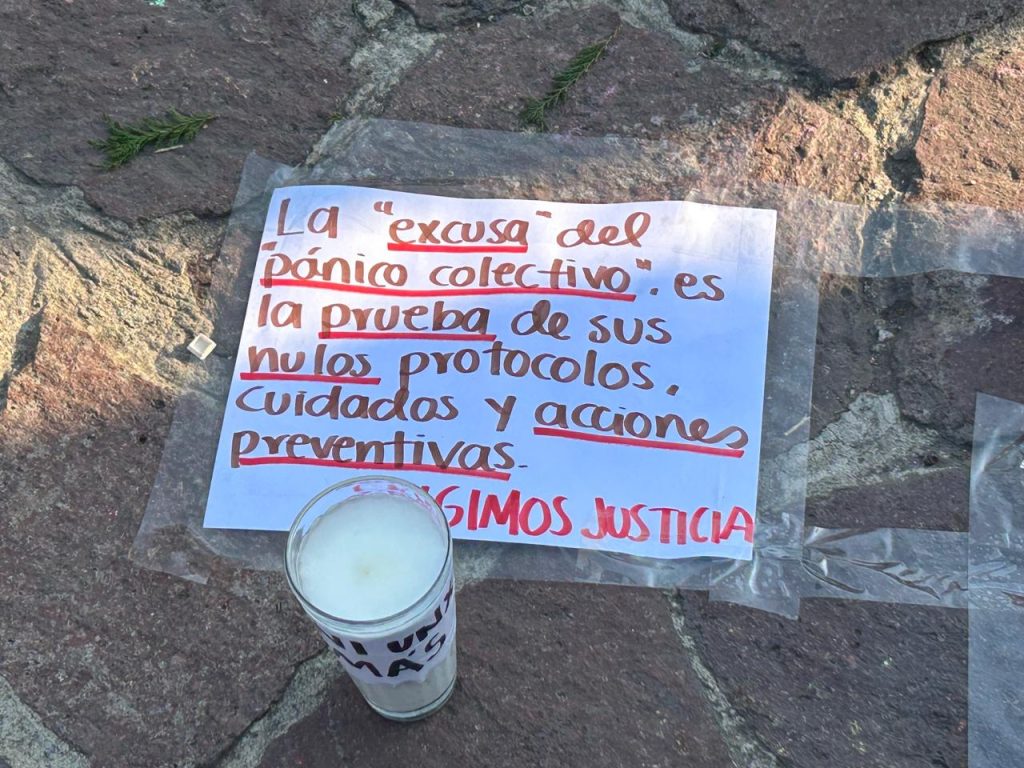 La "excusa" del
"pánico colectivo". es
la prueba de sus
nulos protocolos,
cuidados y acciones
preventivas.
EXIGIMOS JUSTICIA
NI UNX
MÁS